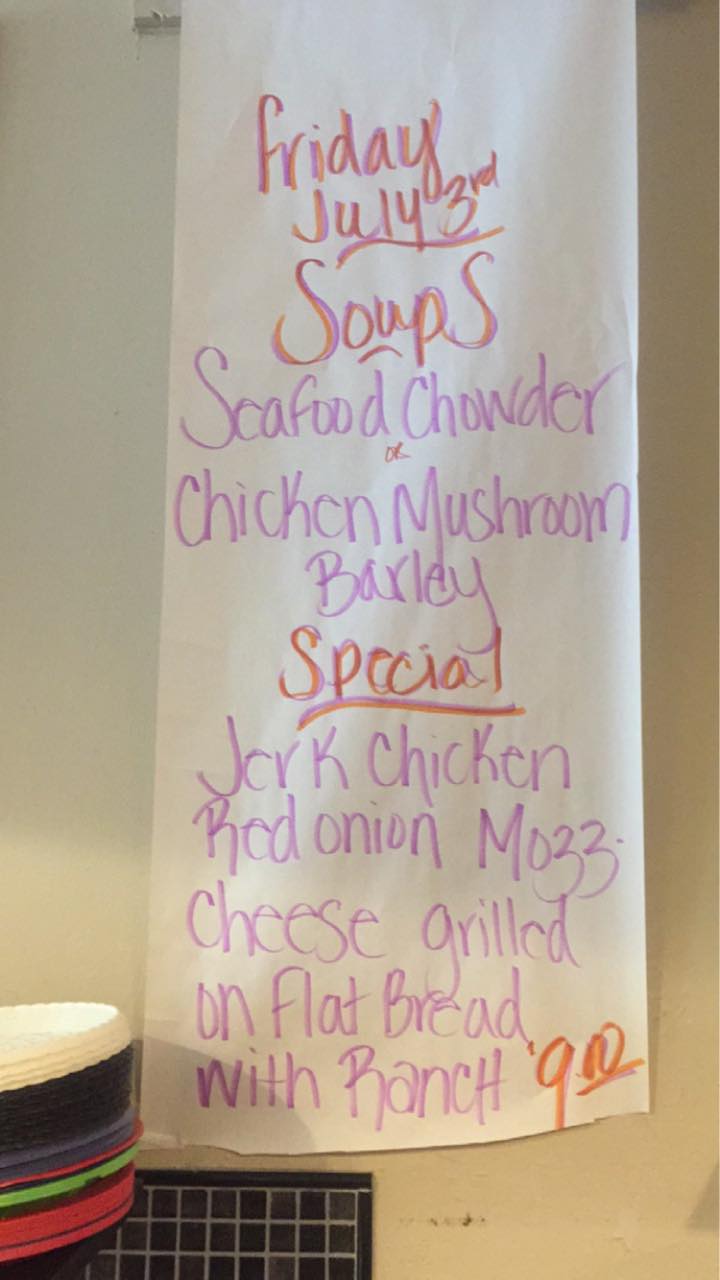 Friday
July 3rd
Soups
Seafood Chowder
or
Chicken Mushroom
Barley
Special
Jerk Chicken
Red onion Mozz.
Cheese grilled
on Flat Bread
with Ranch 9.10